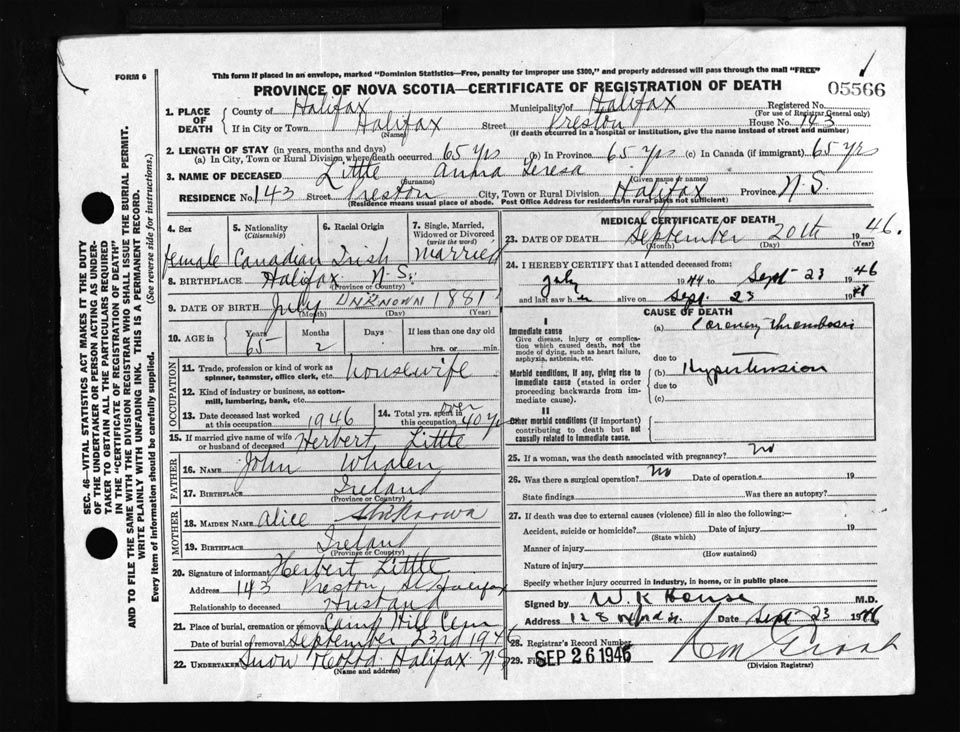 FORM 6
This form if placed in an envelope, marked "Dominion Statistics—Free, penalty for improper use $300," and properly addressed will pass through the mail "FREE"
PROVINCE OF NOVA SCOTIA—CERTIFICATE OF REGISTRATION OF DEATH
05566
1. PLACE OF DEATH
County of Halifax Municipality of Halifax Registered No.
(For use of Registrar General only)
If in City or Town Halifax Street Preston House No. 143
(Name) (If death occurred in a hospital or institution, give the name instead of street and number)
2. LENGTH OF STAY (in years, months and days)
(a) In City, Town or Rural Division where death occurred 65 yrs (b) In Province 65 yrs (c) In Canada (if immigrant) 65 yrs
3. NAME OF DECEASED Little Anna Teresa
(Surname) (Given name or names)
RESIDENCE No. 143 Preston City, Town or Rural Division Halifax Province N.S.
(Residence means usual place of abode. Post Office Address for residents in rural parts not sufficient)
4. Sex female
5. Nationality (Citizenship) Canadian
6. Racial Origin Irish
7. Single, Married, Widowed or Divorced (write the word) Married
8. BIRTHPLACE Halifax N.S.
(Province or Country)
9. DATE OF BIRTH July UNKNOWN 1881
(Month) (Day) (Year)
10. AGE in Years 65 Months 2 Days If less than one day old
hrs. or min.
OCCUPATION
11. Trade, profession or kind of work as spinner, teamster, office clerk, etc. housewife
12. Kind of industry or business, as cotton-mill, lumbering, bank, etc.
13. Date deceased last worked at this occupation 1946
14. Total yrs. spent in this occupation over 40 yrs
15. If married give name of wife or husband of deceased Herbert Little
FATHER
16. NAME John Whalen
17. BIRTHPLACE Ireland
(Province or Country)
MOTHER
18. MAIDEN NAME Alice Unknown
19. BIRTHPLACE Ireland
(Province or Country)
20. Signature of informant Herbert Little
Address 143 Preston St Halifax
Relationship to deceased Husband
21. Place of burial, cremation or removal Camp Hill Cem
Date of burial or removal September 23rd 1946
22. UNDERTAKER Snow & Co Ltd. Halifax N.S.
(Name and address)
MEDICAL CERTIFICATE OF DEATH
23. DATE OF DEATH September 20th 1946.
(Month) (Day) (Year)
24. I HEREBY CERTIFY that I attended deceased from:
July 1944 to Sept 23 1946
and last saw her alive on Sept. 23 19
CAUSE OF DEATH
I
Immediate cause
Give disease, injury or complication which caused death, not the mode of dying, such as heart failure, asphyxia, asthenia, etc.
(a) Coronary thrombosis
due to
Morbid conditions, if any, giving rise to immediate cause (stated in order proceeding backwards from immediate cause).
(b) Hypertension
due to
(c)
II
Other morbid conditions (if important) contributing to death but not causally related to immediate cause.
25. If a woman, was the death associated with pregnancy? No
26. Was there a surgical operation? No Date of operation 19
State findings Was there an autopsy?
27. If death was due to external causes (violence) fill in also the following:—
Accident, suicide or homicide? Date of injury 19
(State which)
Manner of injury
(How sustained)
Nature of injury
Specify whether injury occurred in industry, in home, or in public place
Signed by W. K House M.D.
Address 128 Date Sept 23 1946
28. Registrar's Record Number
29. Filed SEP 26 1946
(Division Registrar)
SEC. 46—VITAL STATISTICS ACT MAKES IT THE DUTY OF THE UNDERTAKER OR PERSON ACTING AS UNDERTAKER TO OBTAIN ALL THE PARTICULARS REQUIRED IN THE "CERTIFICATE OF REGISTRATION OF DEATH" AND TO FILE THE SAME WITH THE DIVISION REGISTRAR WHO SHALL ISSUE THE BURIAL PERMIT.
WRITE PLAINLY WITH UNFADING INK. THIS IS A PERMANENT RECORD.
Every item of information should be carefully supplied. (See reverse side for instructions.)